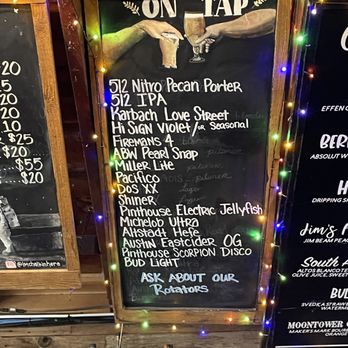 ON TAP
512 Nitro Pecan Porter
512 IPA
Karbach Love Street
Hi Sign Violet /or Seasonal
Firemans 4
ABW Pearl Snap
Miller Lite
Pacifico
Dos XX
Shiner
Pinthouse Electric Jellyfish
Michelob Ultra
Altstadt Hefe
Austin Eastcider OG
Pinthouse Scorpion Disco
Bud Light
Ask About Our
Rotators
20
20
15
20
10
$75
$20
$55
$20
EFFEN
BER
ABSOLUT
H
DRIPPING
Jim's
JIM BEAM
South
ALTOS BLANCO
OLIVE JUICE, SWEET
BUL
SVEDKA
WATERM
MOONTOWER
MAKER'S MARK
ORANGE